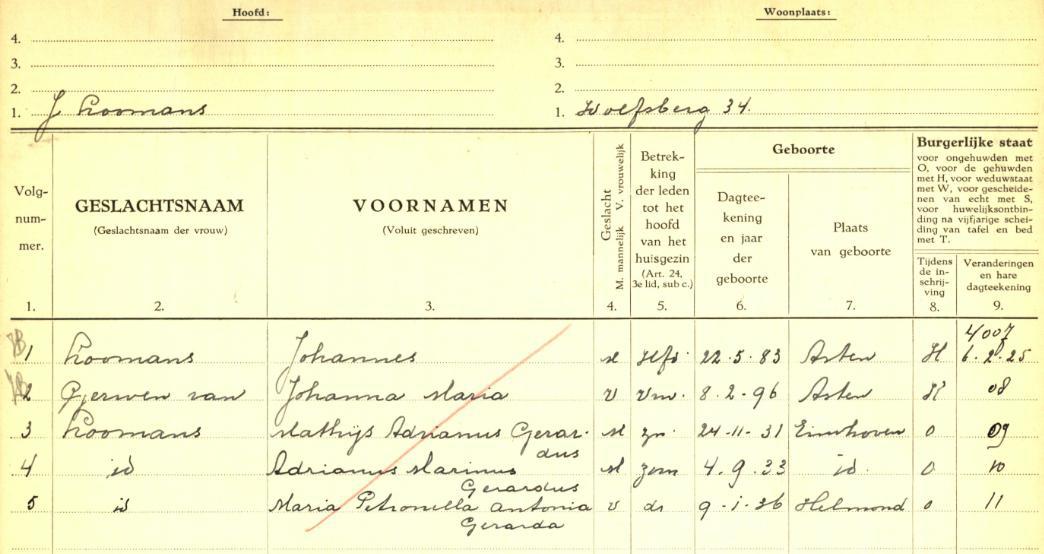 Hoofd: Woonplaats:
4. 4.
3. 3.
2. 2.
1. J Loomans 1. Wolfsberg 34.
Volg-
num-
mer.
GESLACHTSNAAM
(Geslachtsnaam der vrouw)
VOORNAMEN
(Voluit geschreven)
Geslacht
M. mannelijk V. vrouwelijk
Betrek-
king
der leden
tot het
hoofd
van het
huisgezin
(Art. 24,
3e lid, sub c.)
Geboorte
Dagtee-
kening
en jaar
der
geboorte
Plaats
van geboorte
Burgerlijke staat
voor ongehuwden met
O, voor de gehuwden
met H, voor weduwstaat
met W, voor gescheide-
nen van echt met S,
voor huwelijksontbin-
ding na vijfjarige schei-
ding van tafel en bed
met T.
Tijdens
de in-
schrij-
ving
Veranderingen
en hare
dagteekening
1. 2. 3. 4. 5. 6. 7. 8. 9.
4007
1 Loomans Johannes M Hfd. 22.5.83 Asten H 6.2.25
2 Gerwen van Johanna Maria V vw. 8.2.96 Asten H 08
3 Loomans Mathijs Adrianus Gerar- M zn. 24-11-31 Eindhoven O 09
dus
4 id Adrianus Marinus M zoon 4.9.33 id. O 10
Gerardus
5 id Maria Petronella Antonia V dr 9.1.36 Helmond O 11
Gerarda